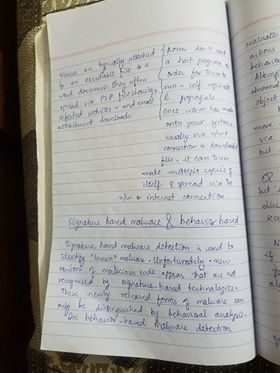 Viruses are typically attached
to an executable file or a
word document. They often
spread via P2P file sharing,
infected websites, and email
attachment downloads
Worms don't need
a host program in
order for them to
run, self replicate
& propagate.
Once worm has made
onto your system,
usually via n/w
connection or downloaded
file, it can then
make multiple copies of
itself & spread via the
n/w or internet connection
Signature based malware & behavior based
Signature based malware detection is used to
identify "known" malware. Unfortunately, new
versions of malicious code appear that are not
recognised by signature-based technologies.
These newly released forms of malware can
only be distinguished by behavioral analysis.
On behavior-based malware detection
evaluates
actions
behavior
Attempt
abnormal
object
more
via
but
Q
but
also